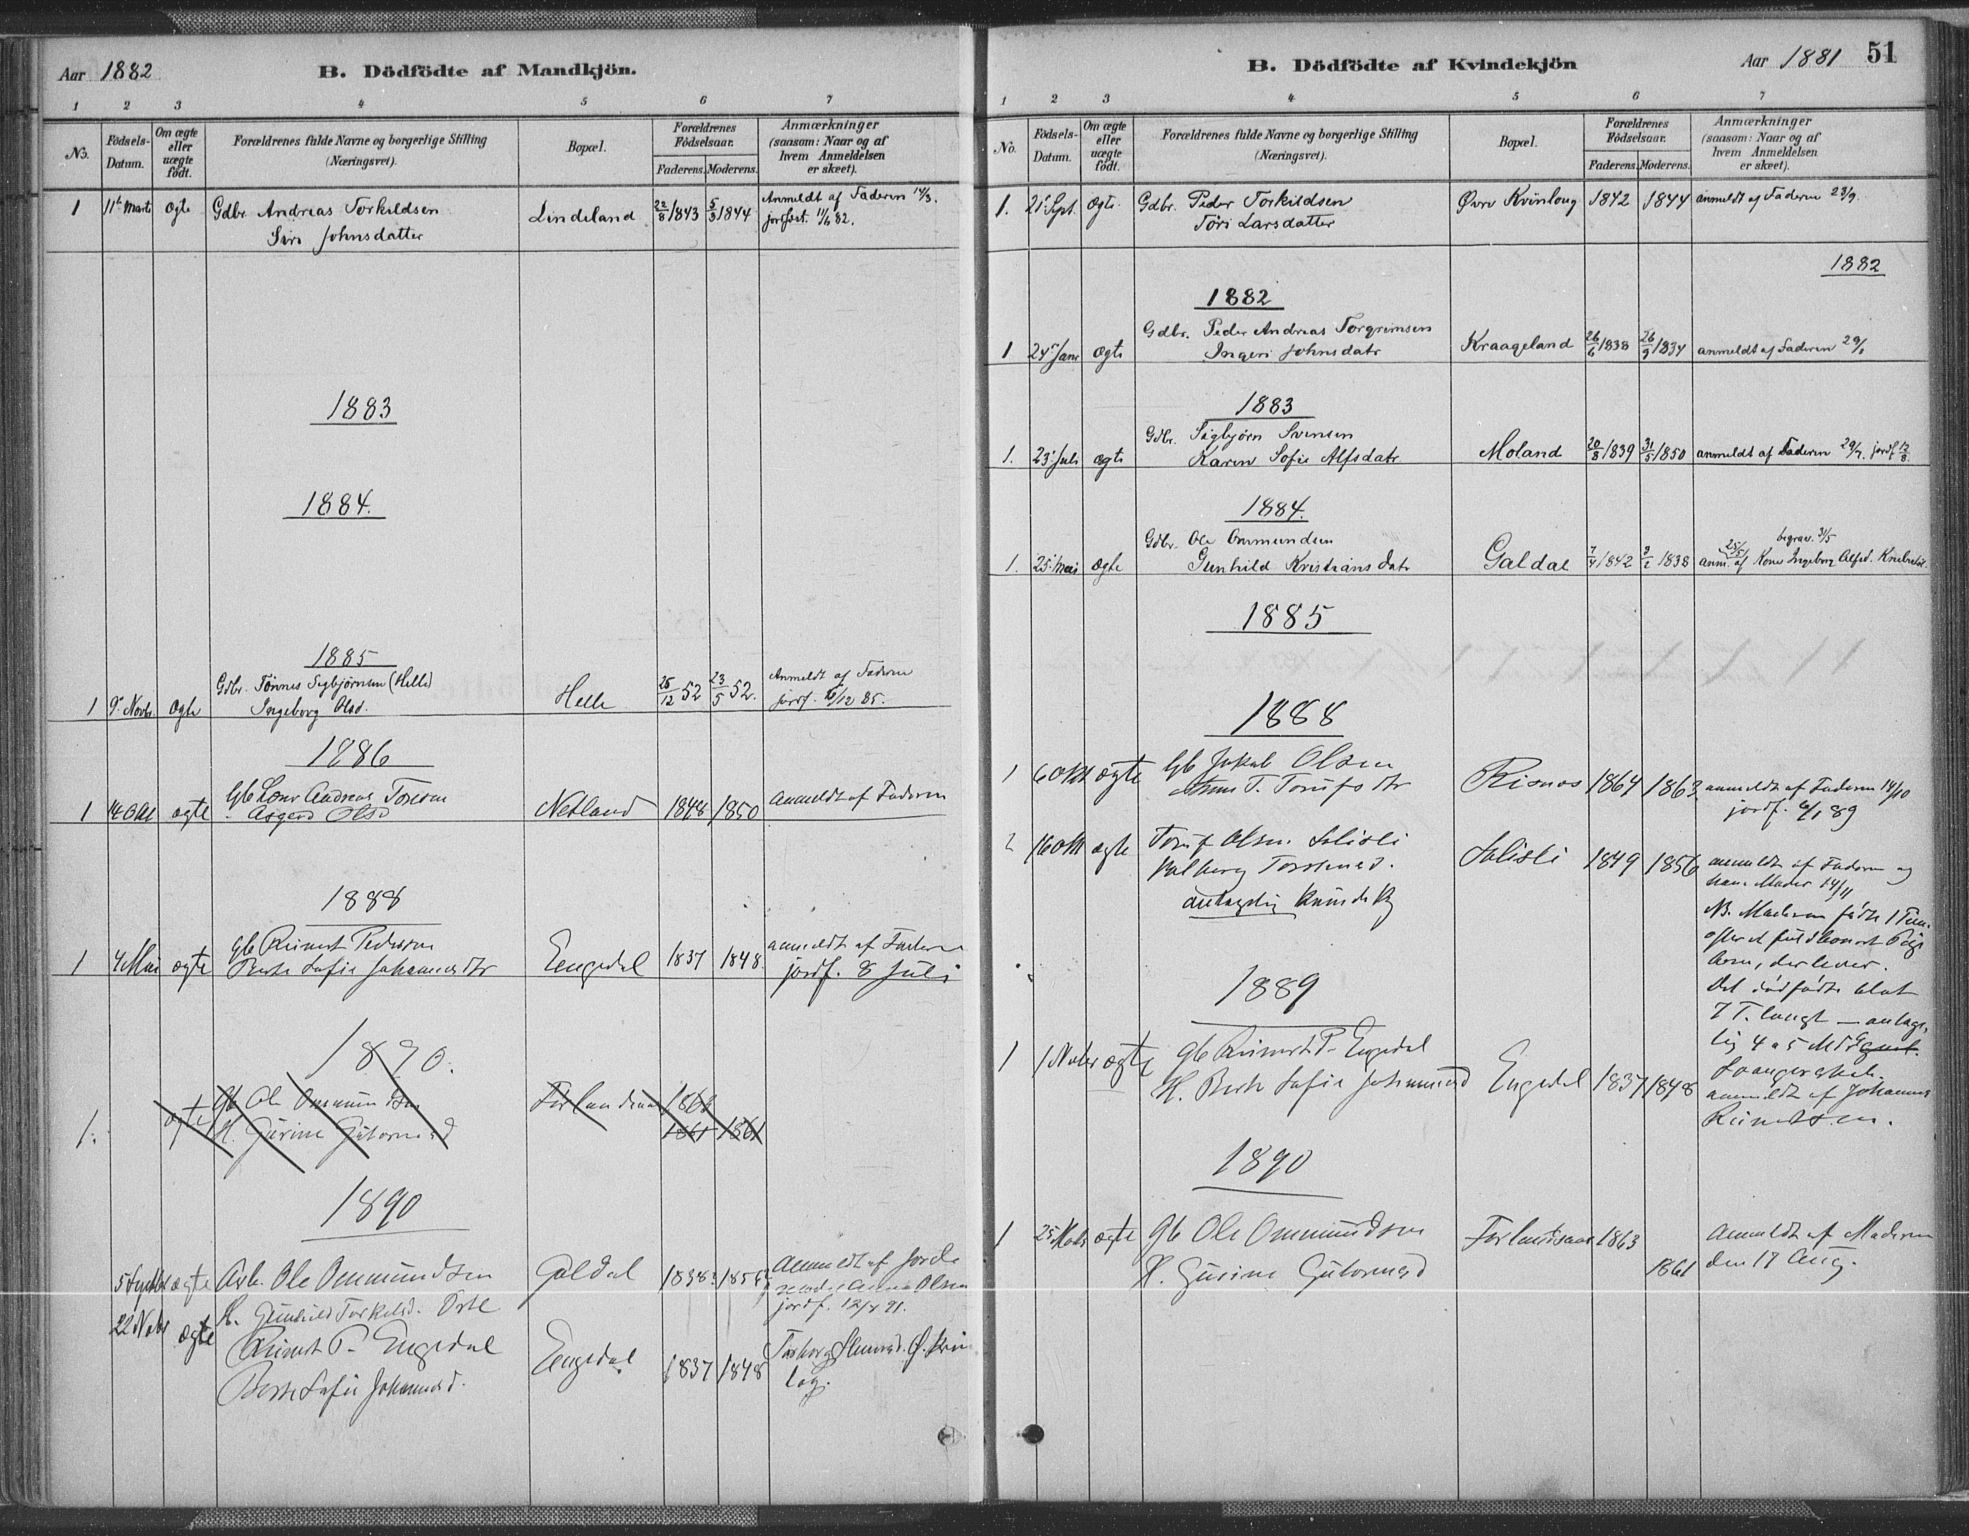 Aar 1882
B. Dödfödte af Mandkjön.
1 2 3 4 5 6 7
No.
Födsels-Datum.
Om ægte eller uægte födt.
Forældrenes fulde Navne og borgerlige Stilling (Næringsvei).
Bopæl.
Forældrenes Födselsaar.
Faderens. Moderens.
Anmærkninger (saasom: Naar og af hvem Anmeldelsen er skeet).
1 11te Marts ægte Gdbr. Andreas Torkildsen Lindeland 22/8 1843 5/3 1844 Anmeldt af Faderen 14/3.
Siri Johnsdatter
1883
1884.
1885
1 9de Novbr ægte Gdbr. Tønnes Sigbjørnsen (Helle) Helle 25/12 52 23/5 52. Anmeldt af Faderen
Ingeborg Olsd. jordf. /12 85.
1886
1 14 Okt ægte Gb Andreas Netland 1848 1850 anmeldt af Faderen
Asgerd Olsd
1888
1 4 Mai ægte Gb Reinert Pedersen Engedal 1837 1848 anmeldt af Faderen
Berte Sofie Johannesdtr jordf. 8 Juli
1890.
1. ægte Gb Ole Ommundsen 1861
H. Gurine Gutormsd 1861 1861
1890
5 Septbr ægte Arb. Ole Ommundsen Galdal 1838 Anmeldt af Jorde
H. Gunhild Torkelsd. moder Anna Olsen
jordf. 12/4 91.
22 Nobr ægte Reinert P. Engedal Engedal 1837 1848
Berte Sofie Johannesd.
B. Dödfödte af Kvindekjön
Aar 1881 51
1 2 3 4 5 6 7
No.
Födsels-Datum.
Om ægte eller uægte födt.
Forældrenes fulde Navne og borgerlige Stilling (Næringsvei).
Bopæl.
Forældrenes Födselsaar.
Faderens. Moderens.
Anmærkninger (saasom: Naar og af hvem Anmeldelsen er skeet).
1. 21 Sept. ægte Gdbr. Peder Torkildsen Øvre Kvinloug 1842 1844 anmeldt af Faderen 23/9.
Tori Larsdatter
1882
1882
1 24 Janr ægte Gdbr. Peder Andreas Torgrimsen Kraageland 26/6 1838 26/9 1834 anmeldt af Faderen 29/1
Ingeri Johnsdatr
1883
1. 23 Juli ægte Gdbr. Sigbjørn Svensen Moland 20/8 1839 31/5 1850 anmeldt af Faderen 29/7. jordf 12/8.
Karen Sofie Alfsdatr
1884.
1. 25 Mai ægte Gdbr. Ole Ommundsen Galdal 7/4 1842 3/2 1838 begrav. 31/5
Gunhild Kristiansdatr anm. 25/5 af Kone Ingeborg Alfsd.
1885
1888
1 6 Okt ægte Gb Jakob Olsen Risnes 1864 1863 anmeldt af Faderen 14/10
jordf. 6/1 89
2 16 Okt ægte Olsen Solisli Solisli 1849 1856 anmeldt af Faderen og
hans Moder 14/11
antagelig Kvindekj
NB. Moderen fødte 1 Time
efter et fuldbaaret Pige
barn, der lever.
Det dødfødte blot
7 T. langt — antage-
lig 4 a 5 Mdr
Svangerskab.
1889
1 1 Nobr ægte Gb Reinert P. Engedal Engedal 1837 1848 anmeldt af Johannes
H. Berte Sofie Johannesd Reinertsen.
1890
1 25 ægte Gb Ole Ommundsen 1863 Anmeldt af Moderen
H. Gurine Gutormsd 1861 den 17 Aug.